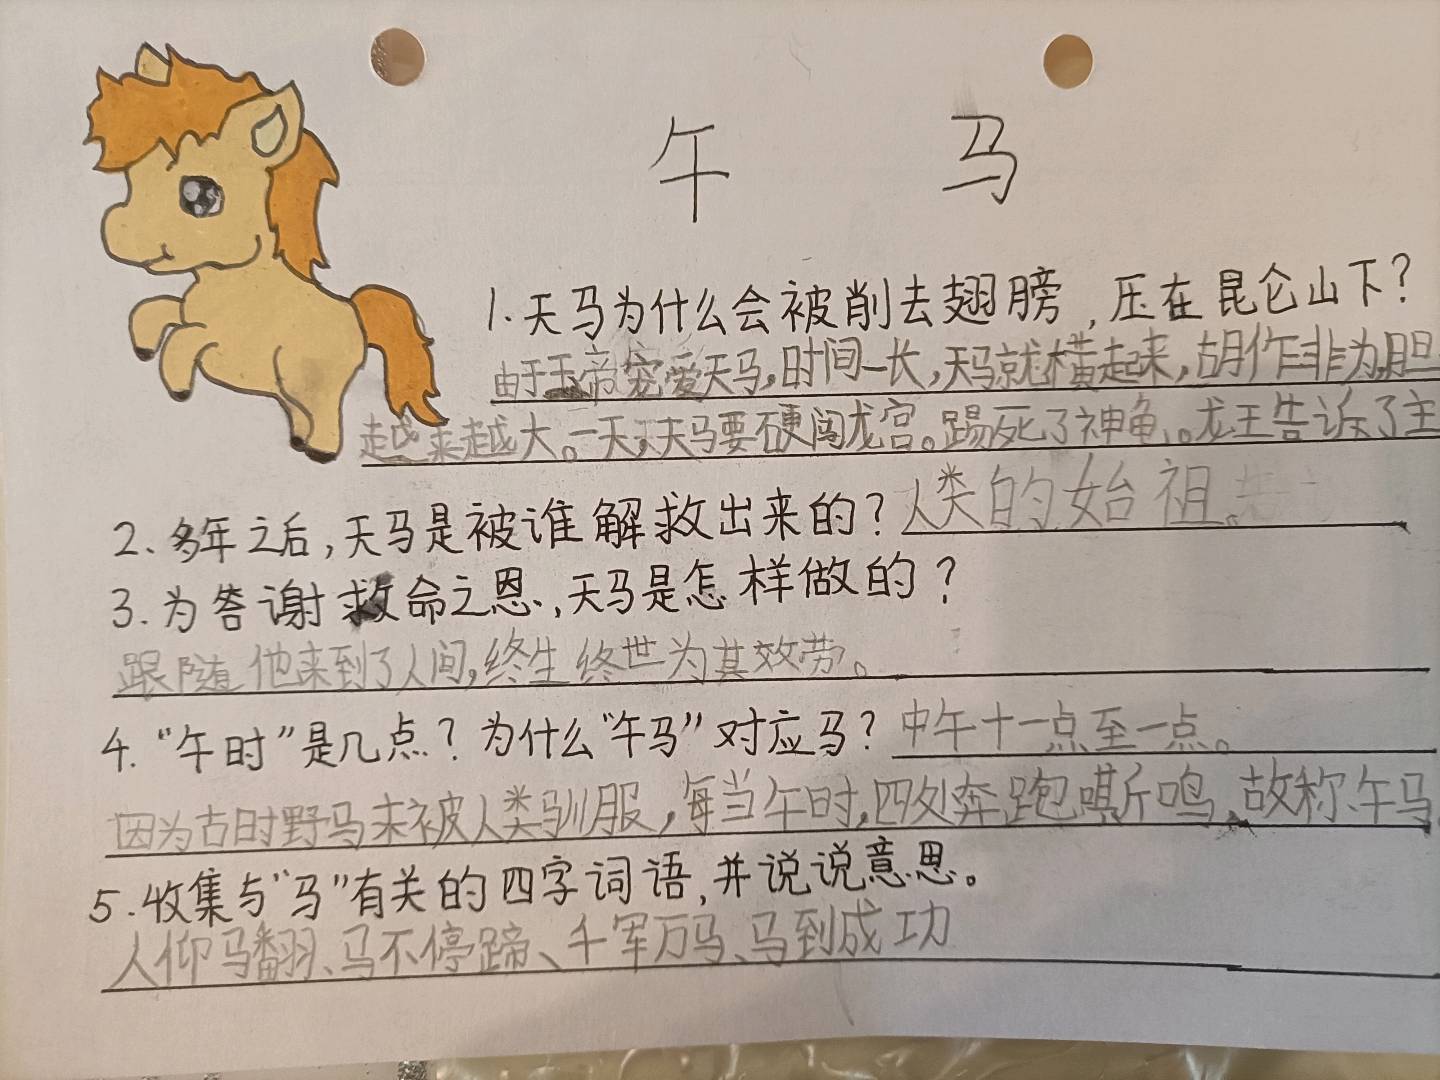 午 马
1.天马为什么会被削去翅膀,压在昆仑山下?
由于玉帝宠爱天马,时间一长,天马就横起来,胡作非为,胆
越来越大。一天,天马要硬闯龙宫。踢死了神龟。龙王告诉了主
2、多年之后,天马是被谁解救出来的?人类的始祖。
3.为答谢救命之恩,天马是怎样做的?
跟随他来到了人间,终生终世为其效劳。
4.“午时”是几点?为什么“午马”对应马?中午十一点至一点。
因为古时野马未被人类驯服,每当午时,四处奔跑嘶鸣,故称午马
5.收集与“马”有关的四字词语,并说说意思。
人仰马翻、马不停蹄、千军万马、马到成功